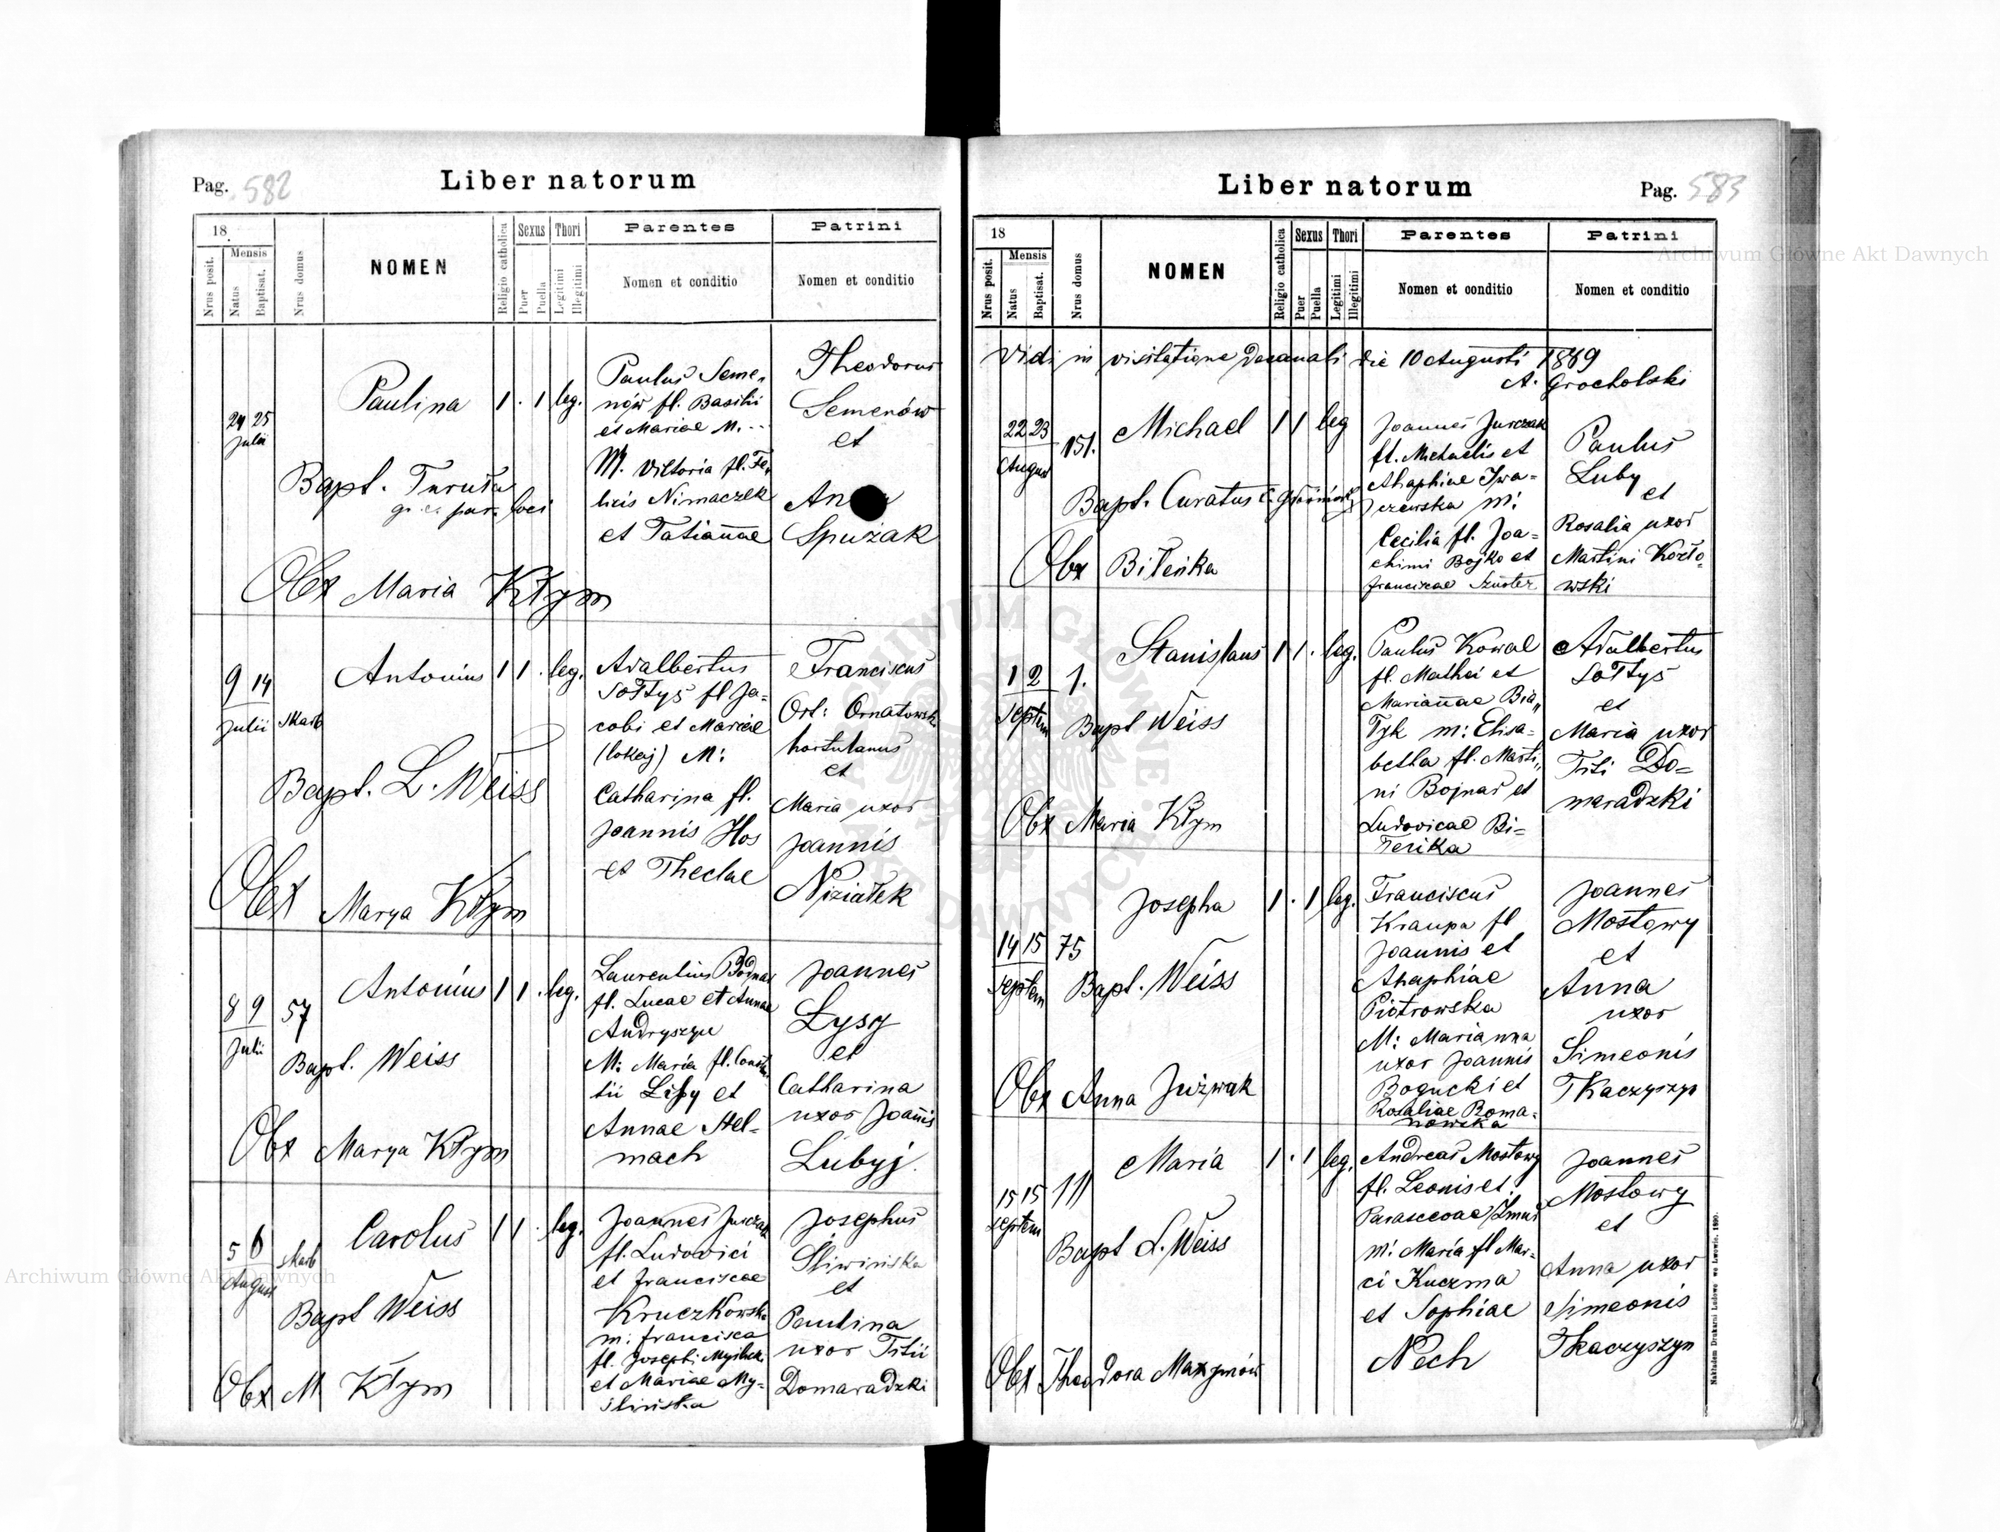 Pag. 582
Liber natorum
18
Mensis
Nrus posit.
Natus
Baptisat.
Nrus domus
NOMEN
Religio catholica
Sexus
Puer
Puella
Thori
Legitimi
Illegitimi
Parentes
Nomen et conditio
Patrini
Nomen et conditio
24 25
Julii
Paulina 1 . 1 leg.
Bapt.
par. loci
Obx Maria Kłym
Paulus Seme-
nów fl. Basilii
et Mariae M.
M. Viktoria fl. Fe-
licis Nimaczek
et Tatiannae
Theodorus
Semenów
et
Spużak
9 14
Julii
Skarb
Antonius 1 1 . leg.
Bapt. L. Weiss
Obx Marya Kłym
Adalbertus
Sołtys fl Ja-
cobi et Mariae
(lokaj) M:
Catharina fl.
Joannis Hos
et Theclae
Franciscus
Ort: Ornatowski
hortulanus
et
Maria uxor
Joannis
Niziałek
8 9
Julii
57
Antonius 1 1 . leg.
Bapt. Weiss
Obx Marya Kłym
Laurentius Bodnar
fl. Lucae et Annae
Andryszyn
M: Maria fl.
et
Annae Hel-
mach
Joannes
Lysy
et
Catharina
uxor Joannis
Lubyj.
5 6
August
Skarb
Carolus 1 1 . leg.
Bapt Weiss
Obx M Kłym
Joannes Jurczak
fl. Ludovici
et Franciscae
Kruczkowska
m: Francisca
fl. Josephi
et Mariae My-
śliwska
Josephus
Śliwińska
et
Paulina
uxor Titii
Domaradzki
Liber natorum
Pag. 583
18
Mensis
Nrus posit.
Natus
Baptisat.
Nrus domus
NOMEN
Religio catholica
Sexus
Puer
Puella
Thori
Legitimi
Illegitimi
Parentes
Nomen et conditio
Patrini
Nomen et conditio
Vidi in visitatione Decanali die 10 Augusti 1889
A. Grocholski
22 23
August
151.
Michael 1 1 leg
Bapt. Curatus
Obx Bilerika
Joannes Jurczak
fl. Michaelis et
Ahaphiae Iwa-
szewska m:
Cecilia fl. Joa-
chimi Bojko et
Franciscae Szuster
Paulus
Luby
et
Rosalia uxor
Martini Kozło-
wski
1 2
Septem
1.
Stanislaus 1 1 . leg.
Bapt Weiss
Obx Maria Kłym
Paulus Kowal
fl. Mathei et
Mariannae Bia-
łyk m: Elisa-
betha fl. Marti-
ni Bojnar et
Ludovicae Bi-
lerika
Adalbertus
Sołtys
et
Maria uxor
Titi Do-
maradzki
14 15
Septem
75
Josepha 1 . 1 leg.
Bapt. Weiss
Obx Anna Juzwak
Franciscus
Kraupa fl
Joannis et
Ahaphiae
Piotrowska
M: Marianna
uxor Joannis
Bogucki et
Rosaliae Roma-
nowska
Joannes
Mostowy
et
Anna
uxor
Simeonis
Tkaczyszyn
15 15
Septem
111
Maria 1 . 1 leg.
Bapt L. Weiss
Obx Theodora Maxymów
Andreas Mostowy
fl. Leonis et
Parascevae
m: Maria fl Mar-
ci Kuczma
et Sophiae
Nech
Joannes
Mostowy
et
Anna uxor
Simeonis
Tkaczyszyn
Nakładem Drukarni Ludowe we Lwowie. 1880.
Archiwum Główne Akt Dawnych
Archiwum Główne Akt Dawnych
ARCHIWUM GŁÓWNE AKT DAWNYCH